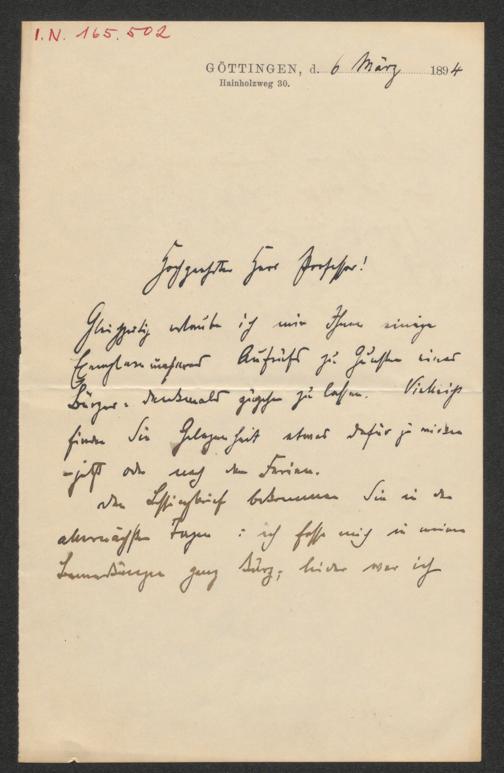 I.N. 165.502
GÖTTINGEN, d. 6 März 1894
Hainholzweg 30.
Hochgeehrter Herr Professor!
Gleichzeitig erlaube ich mir Ihnen einige
Exemplare unseres Aufrufs zu Gunsten eines
Bürger-Denkmals zugehen zu lassen. Vielleicht
finden Sie Gelegenheit etwas dafür zu wirken
– jetzt oder nach den Ferien.
Den Lessingbrief bekommen Sie in den
allernächsten Tagen: ich fasse mich in meinen
Bemerkungen ganz kurz; leider war ich